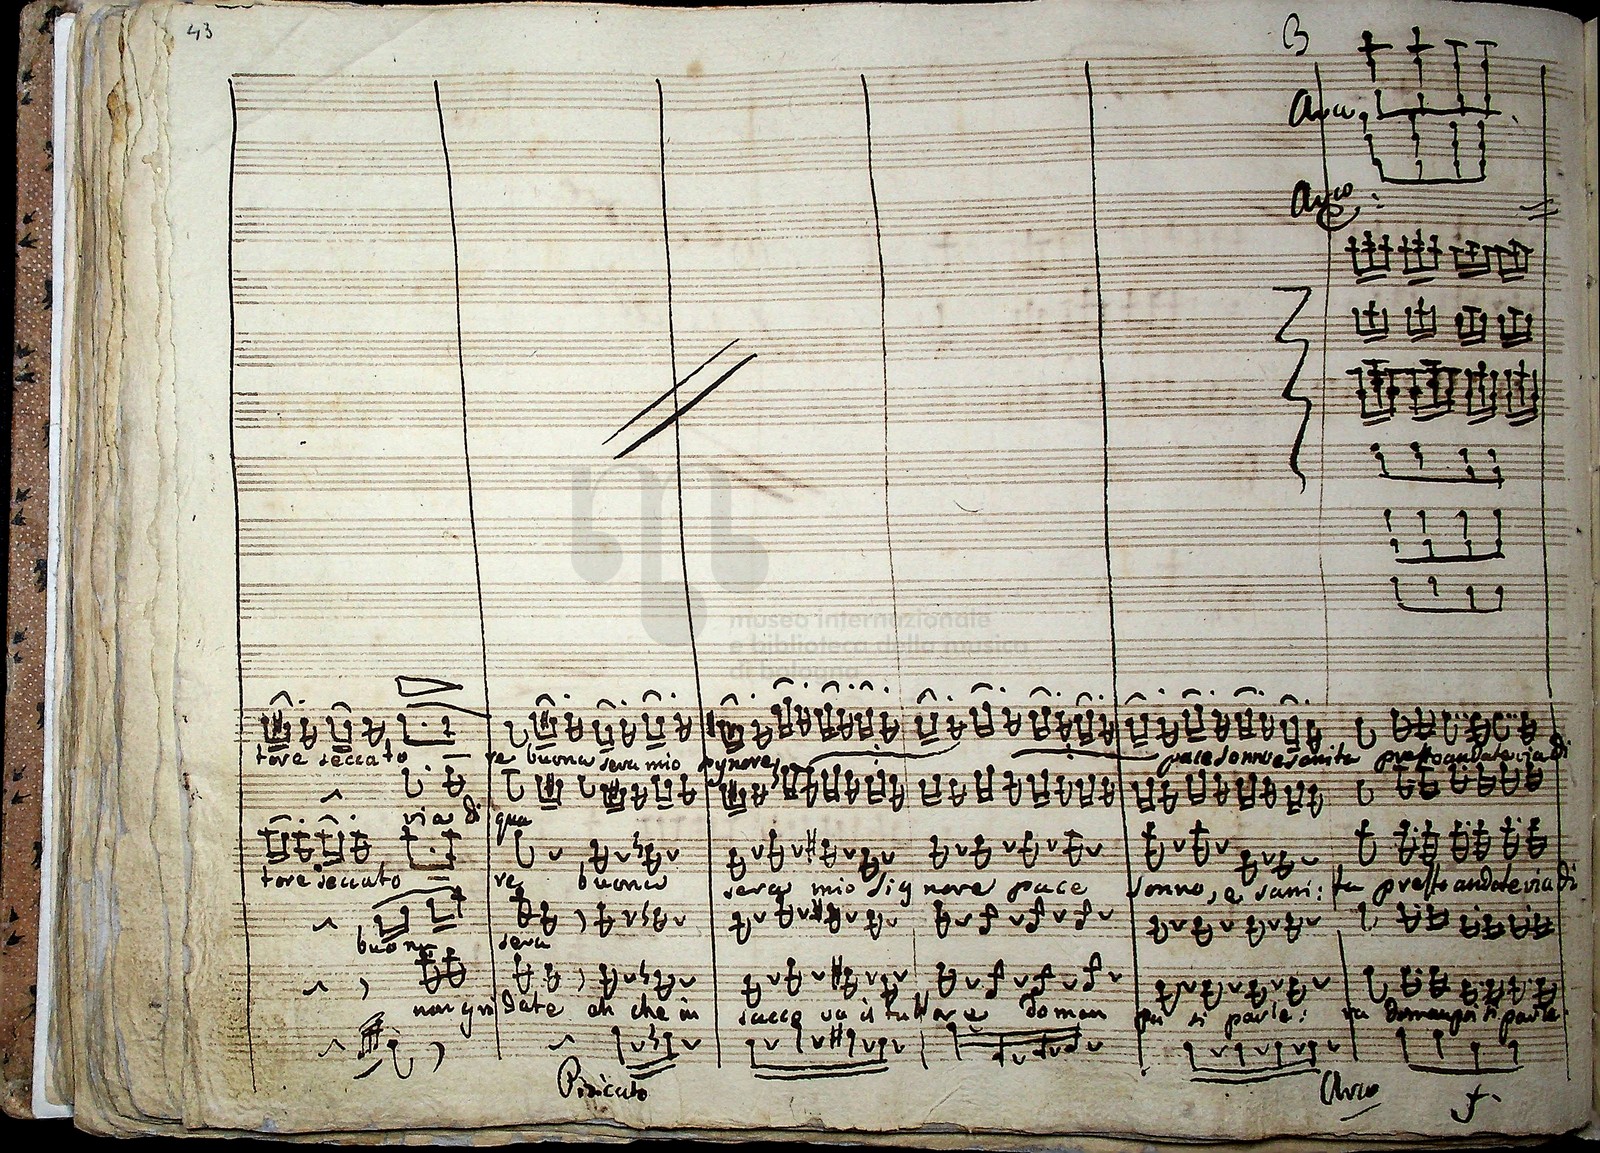 43
Arco
museo internazionale
e biblioteca della musica
di bologna
tore seccato re buona sera mio signore pace sonno e sanita presto andate via di
via di qua
tore seccato re buona sera mio signore pace sonno, e sani: ta presto andate via di
buona sera
non gri date eh che in sacco va il tutore e doman poi si parle: ra doman poi si parle:
Pizicato Arco f